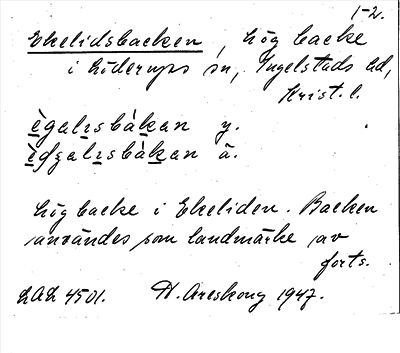 1-2.
Ekelidsbacken, hög backe
i Löderups sn, Ingelstads hd,
Krist. l.
ègalɪsbàkan y.
èdgalɪsbàkan ä.
hög backe i Ekeliden. Backen
användes som landmärke av
forts.
LAL 4501. H. Areskoug 1947.